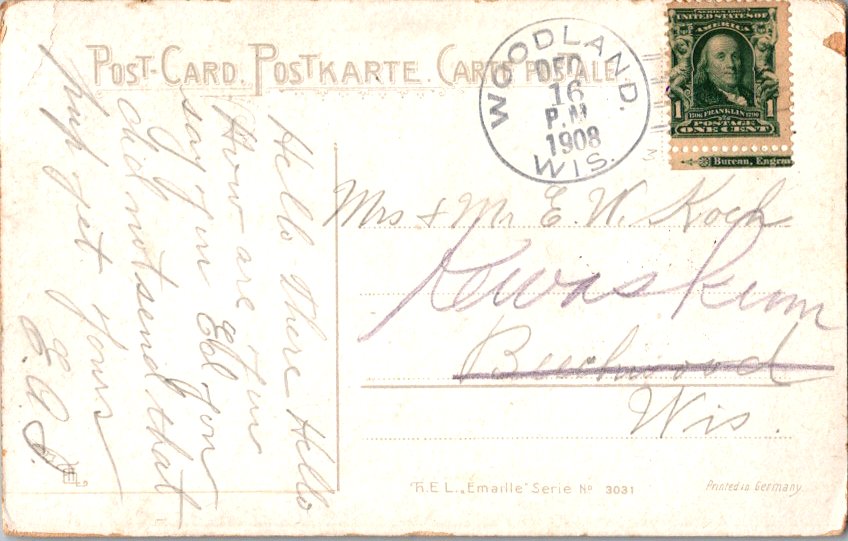 POST-CARD. POSTKARTE. CARTE POSTALE
WOODLAND.
DEC
16
P.M
1908
WIS.
SERIES 1902
UNITED STATES OF
AMERICA
1 1
1706 FRANKLIN 1790
POSTAGE
ONE CENT
Bureau, Engra
Hello there Hello
How are you
say you Ed you
did not send that
yet yours
E.A.S.
Mrs & Mr E. W. Koch
Kewaskum
Beechwood
Wis.
H.E.L. „Emaille" Serie No 3031
Printed in Germany